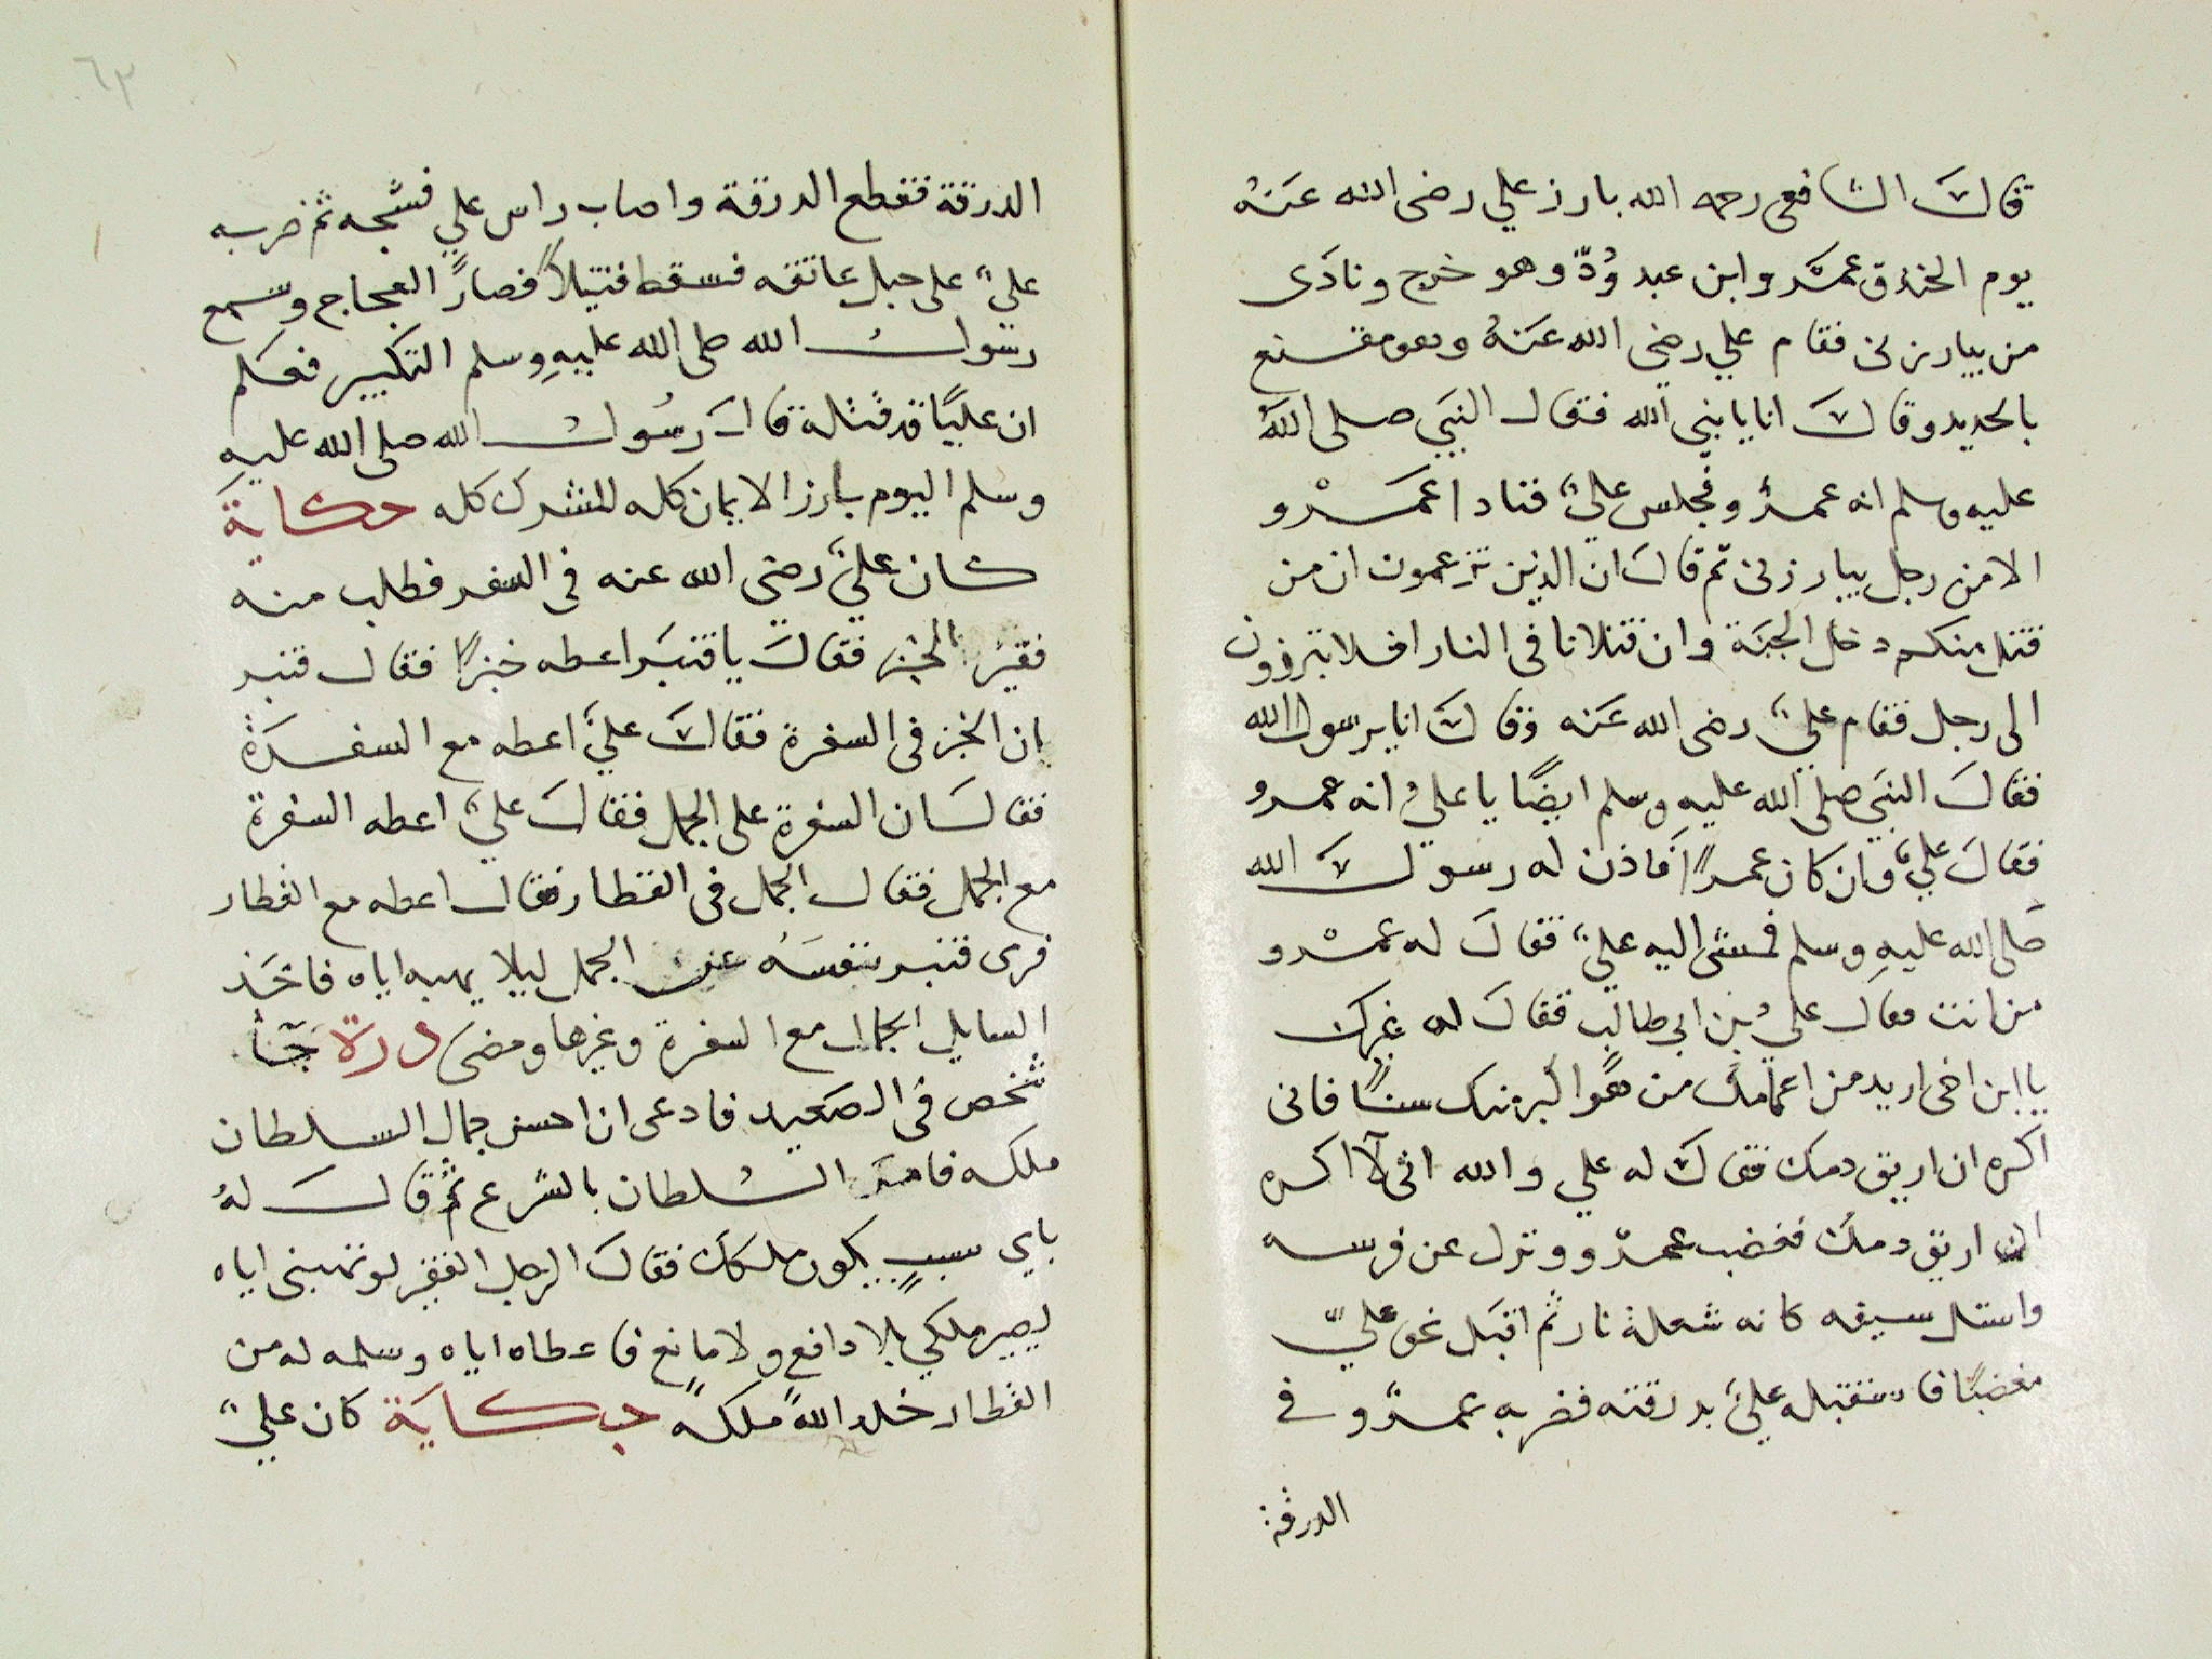 قال الشافعى رحمه الله بارز علي رضى الله عنه
يوم الخندق عمرو ابن عبد ودّ وهو خرج ونادى
من يبارزنى فقام علي رضى الله عنه وهو مقنع
بالحديد وقال انا يا نبى الله فقال النبي صلى الله
عليه وسلم انه عمرو فجلس علي فنادا عمرو
الا من رجل يبارزنى ثم قال ان الذين تزعمون ان من
قتل منكم دخل الجنة وان قتلانا فى النار افلا تبرزون
الى رجل فقام علي رضى الله عنه وقال انا يرسول الله
فقال النبي صلى الله عليه وسلم ايضًا يا علي انه عمرو
فقال علي وان كان عمرًا فاذن له رسول الله
صلى الله عليه وسلم فمشى اليه علي فقال له عمرو
من انت فقال علي بن ابى طالب فقال له غيرك
يا ابن اخى اريد من اعمامك من هو اكبر منك سنًا فانى
اكره ان اريق دمك فقال له علي والله انى لا اكره
ان اريق دمك فغضب عمرو ونزل عن فرسه
واستل سيفه كانه شعلة نار ثم اقبل نحو علي
مغضبًا فاستقبله علي بدرقته فضربه عمرو في
الدرقة
٦٣
الدرقة فقطع الدرقة واصاب راس علي فشجه ثم ضربه
علي على حبل عاتقه فسقط قتيلًا فصار العجاج وسمع
رسول الله صلى الله عليه وسلم التكبير فعلم
ان عليًا قد قتله قال رسول الله صلى الله عليه
وسلم اليوم بارز الايمان كله للشرك كله حكاية
كان علي رضى الله عنه فى السفر فطلب منه
فقير الخبز فقال يا قنبر اعطه خبزًا فقال قنبر
ان الخبز فى السفرة فقال علي اعطه مع السفرة
فقال ان السفرة على الجمل فقال علي اعطه السفرة
مع الجمل فقال الجمل فى القطار فقال اعطه مع القطار
فرى قنبر بنفسه عن الجمل ليلا يهبه اياه فاخذ
السايل الجمال مع السفرة وغيرها ومضى درة جآ
شخص فى الصعيد فادعى ان احسن جمال السلطان
ملكه فامر السلطان بالشرع ثم قال له
باي سبب يكون ملكك فقال الرجل الفقير لو تهبنى اياه
ليصير ملكي بلا دافع ولا مانع فاعطاه اياه وسلمه له من
القطار خلد الله ملكه حكاية كان علي